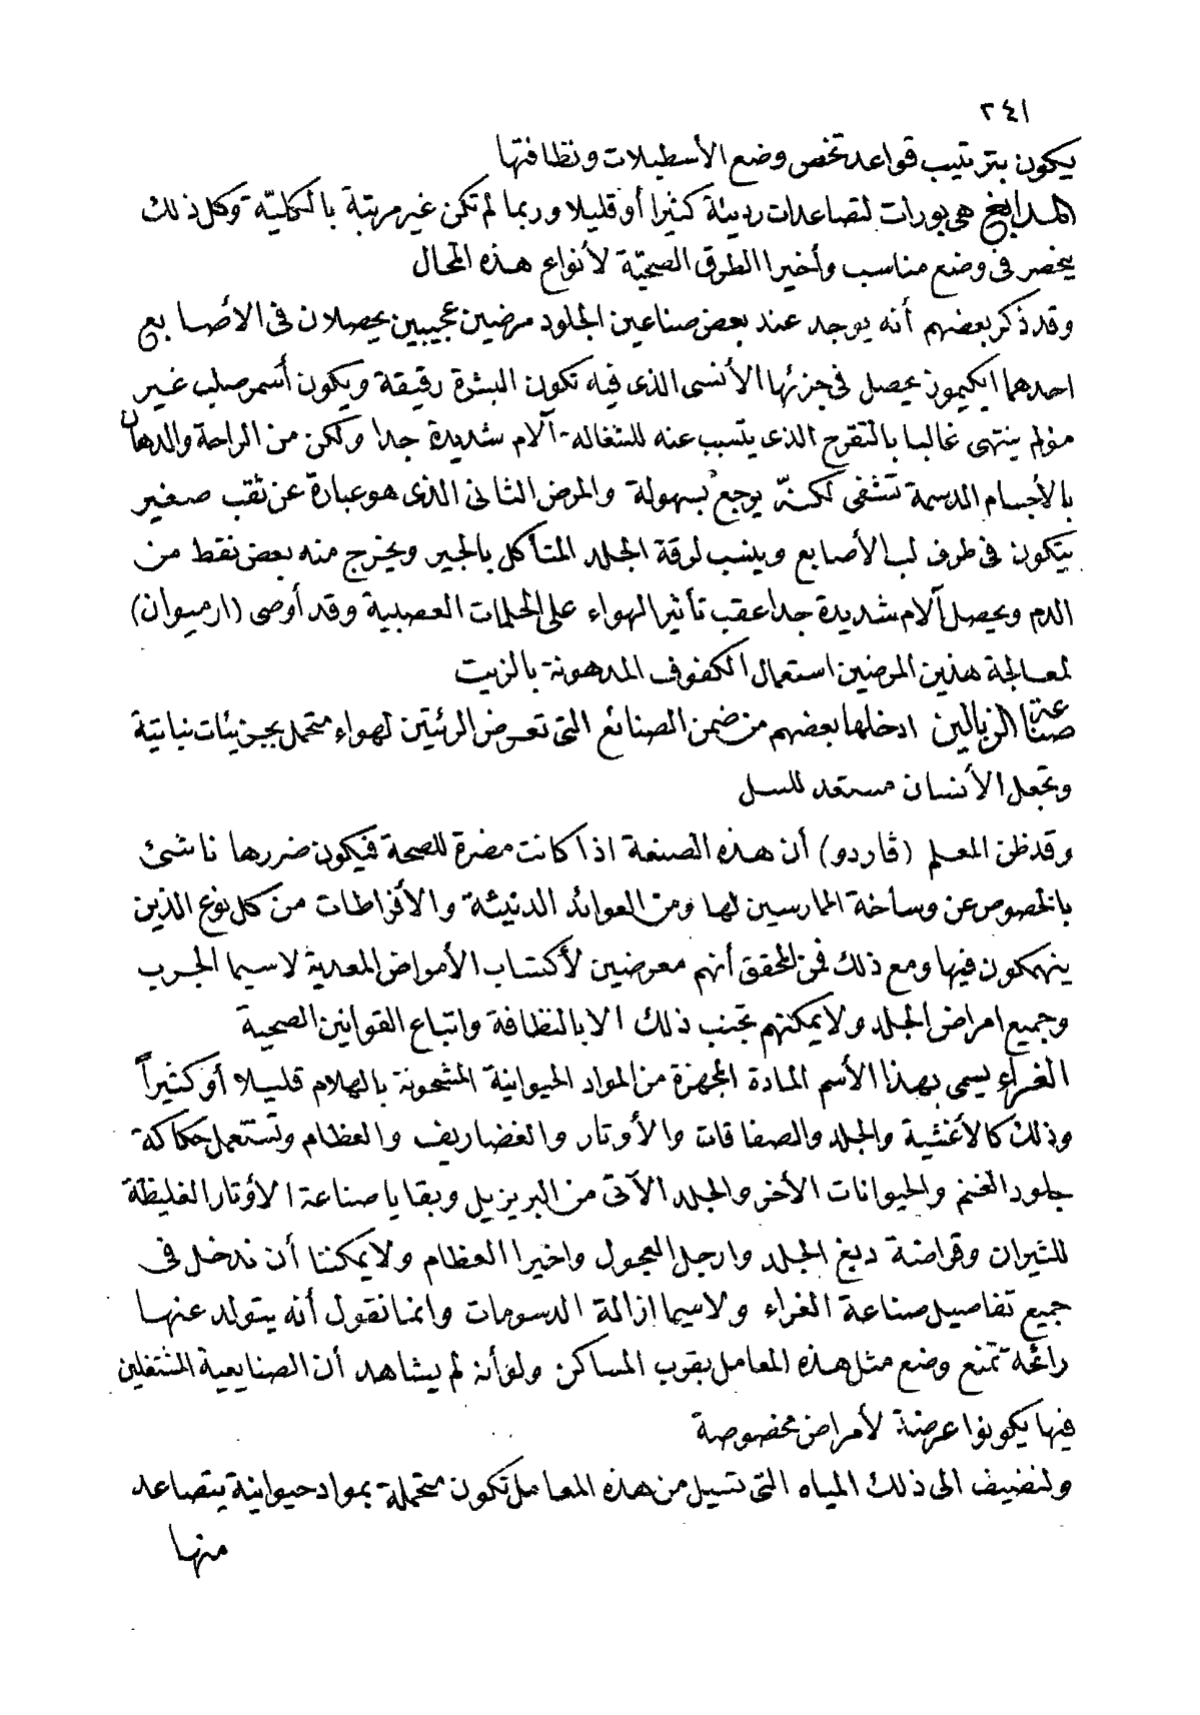 ٢٤١
يكون بترتيب قواعد تخص وضع الأسطبلات ونظافتها
المدابغ هى بورات لتصاعدات رديئة كثيرا أو قليلا وربما لم تكن غير مرتبة بالكليّة وكل ذلك
ينحصر فى وضع مناسب وأخيرا الطرق الصحيّة لأنواع هذه المحال
وقد ذكر بعضهم أنه يوجد عند بعض صناعين الجلود مرضين عجيبين يحصلان فى الأصابع
احدهما ايكيموز يحصل فى جزئها الأنسى الذى فيه تكون البشرة رقيقة ويكون أسمر صلب غير
مؤلم ينتهى غالبا بالتقرح الذى يتسبب عنه للشغاله آلام شديدة جدا ولكن من الراحة والدهان
بالأجسام الدسمة تشفى لكنّه يوجع بسهولة والمرض الثانى الذى هو عبارة عن ثقب صغير
يتكون فى طرف لب الأصابع وينسب لرقة الجلد المتأكل بالجير ويخرج منه بعض نقط من
الدم ويحصل آلام شديدة جدا عقب تأثير الهواء على الحلمات العصبية وقد أوصى (ارميوان)
لمعالجة هذين المرضين استعمال الكفوف المدهونة بالزيت
صناعة الزبالين ادخلها بعضهم من ضمن الصنائع التى تعرض الرئتين لهواء متحمل بجزيئات نباتية
وتجعل الأنسان مستعد للسل
وقد ظن المعلم (ڤاردو) أن هذه الصنعة اذا كانت مضرة للصحة فيكون ضررها ناشئ
بالخصوص عن وساخة الممارسين لها ومن العوائد الدنيئة والأفراطات من كل نوع الذين
ينهمكون فيها ومع ذلك فمن المحقق أنهم معرضين لأكتساب الأمراض المعدية لاسيما الجرب
وجميع امراض الجلد ولا يمكنهم تجنب ذلك الا بالنظافة واتباع القوانين الصحية
الغراء يسمى بهذا الأسم المادة المجهزة من المواد الحيوانية المشحونة بالهلام قليلا أو كثيراً
وذلك كالأغشية والجلد والصفاقات والأوتار والغضاريف والعظام وتستعمل حكاكة
جلود الغنم والحيوانات الأخر والجلد الآتى من البريزيل وبقايا صناعة الأوتار الغليظة
للثيران وقراضة دبغ الجلد وارجل العجول واخيرا العظام ولا يمكننا أن ندخل فى
جميع تفاصيل صناعة الغراء ولاسيما ازالة الدسومات وانما نقول أنه يتولد عنها
رائحة تمنع وضع مثل هذه المعامل بقرب المساكن ولو أنه لم يشاهد أن الصنايعية المشتغلين
فيها يكونوا عرضة لأمراض مخصوصة
ولنضيف الى ذلك المياه التى تسيل من هذه المعامل تكون متحملة بمواد حيوانية يتصاعد
منها